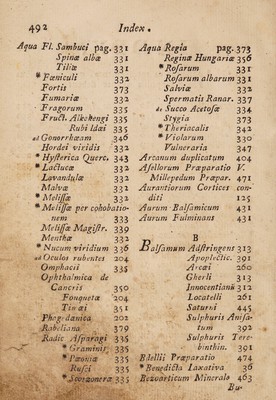 492 Index.
Aqua Fl. Sambuci pag. 331
Spinæ albæ 331
Tiliæ 331
* Fœniculi 332
Fortis 373
Fumariæ 332
Fragorum 335
Fruct. Alkekengi 335
Rubi Idæi 335
ad Gonorrhœam 346
Hordei viridis 332
* Hysterica Querc. 343
* Lactucæ 332
Lavandulæ 332
Malvæ 332
* Melissæ 332
* Melissæ per cohobationem 333
Melissæ Magistr. 339
Menthæ 332
* Nucum viridium 336
ad Oculos rubentes 204
Omphacii 335
Ophthalmica de
Cancris 350
Fonquetæ 204
351
Phagedænica 202
Rabeliana 379
Radic Asparagi 335
* Graminis 335
* Pæoniæ 335
Rusci 335
* Scorzoneræ 335
Aqua Regia pag. 373
Reginæ Hungariæ 356
* Rosarum 331
Rosarum albarum 331
Salviæ 332
Spermatis Ranar. 337
de Succo Acetosæ 334
Stygia 373
* Theriacalis 342
* Violarum 330
Vulneraria 347
Arcanum duplicatum 404
Asellorum Præparatio V.
Millepedum Præpar. 471
Aurantiorum Cortices conditi 125
Aurum Balsamicum 431
Aurum Fulminans 431
B
Balsamum Adstringens 313
Apoplectic. 391
Arcæi 260
Gherli 313
Innocentianū 312
Locatelli 261
Saturni 445
Sulphuris Anisatum 392
Sulphuris Terebinthin. 391
Bdellii Præparatio 474
* Benedicta Laxativa 36
Bezoarticum Minerale 463
Bu-